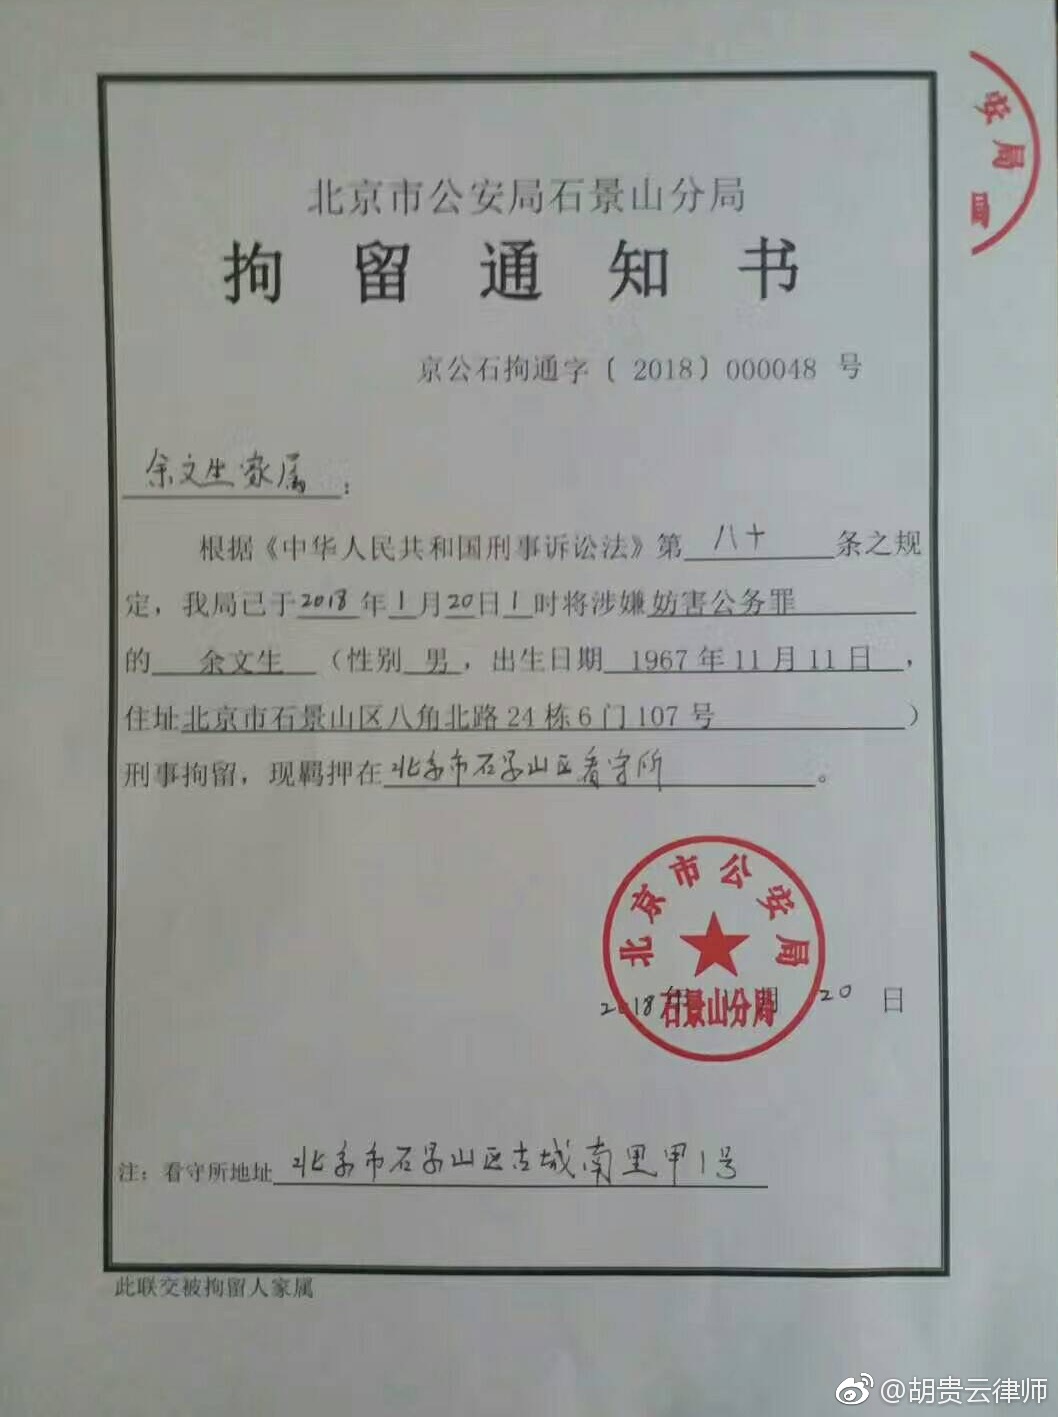 安局
北京市公安局石景山分局
拘留通知书
京公石拘通字〔2018〕000048 号
余文生家属：
根据《中华人民共和国刑事诉讼法》第八十条之规
定，我局已于2018年1月20日1时将涉嫌妨害公务罪
的 余文生 （性别 男，出生日期 1967年11月11日，
住址北京市石景山区八角北路24栋6门107号）
刑事拘留，现羁押在北京市石景山区看守所。
北京市公安局
石景山分局
2018年 月 20 日
注：看守所地址 北京市石景山区古城南里甲1号
此联交被拘留人家属
@胡贵云律师